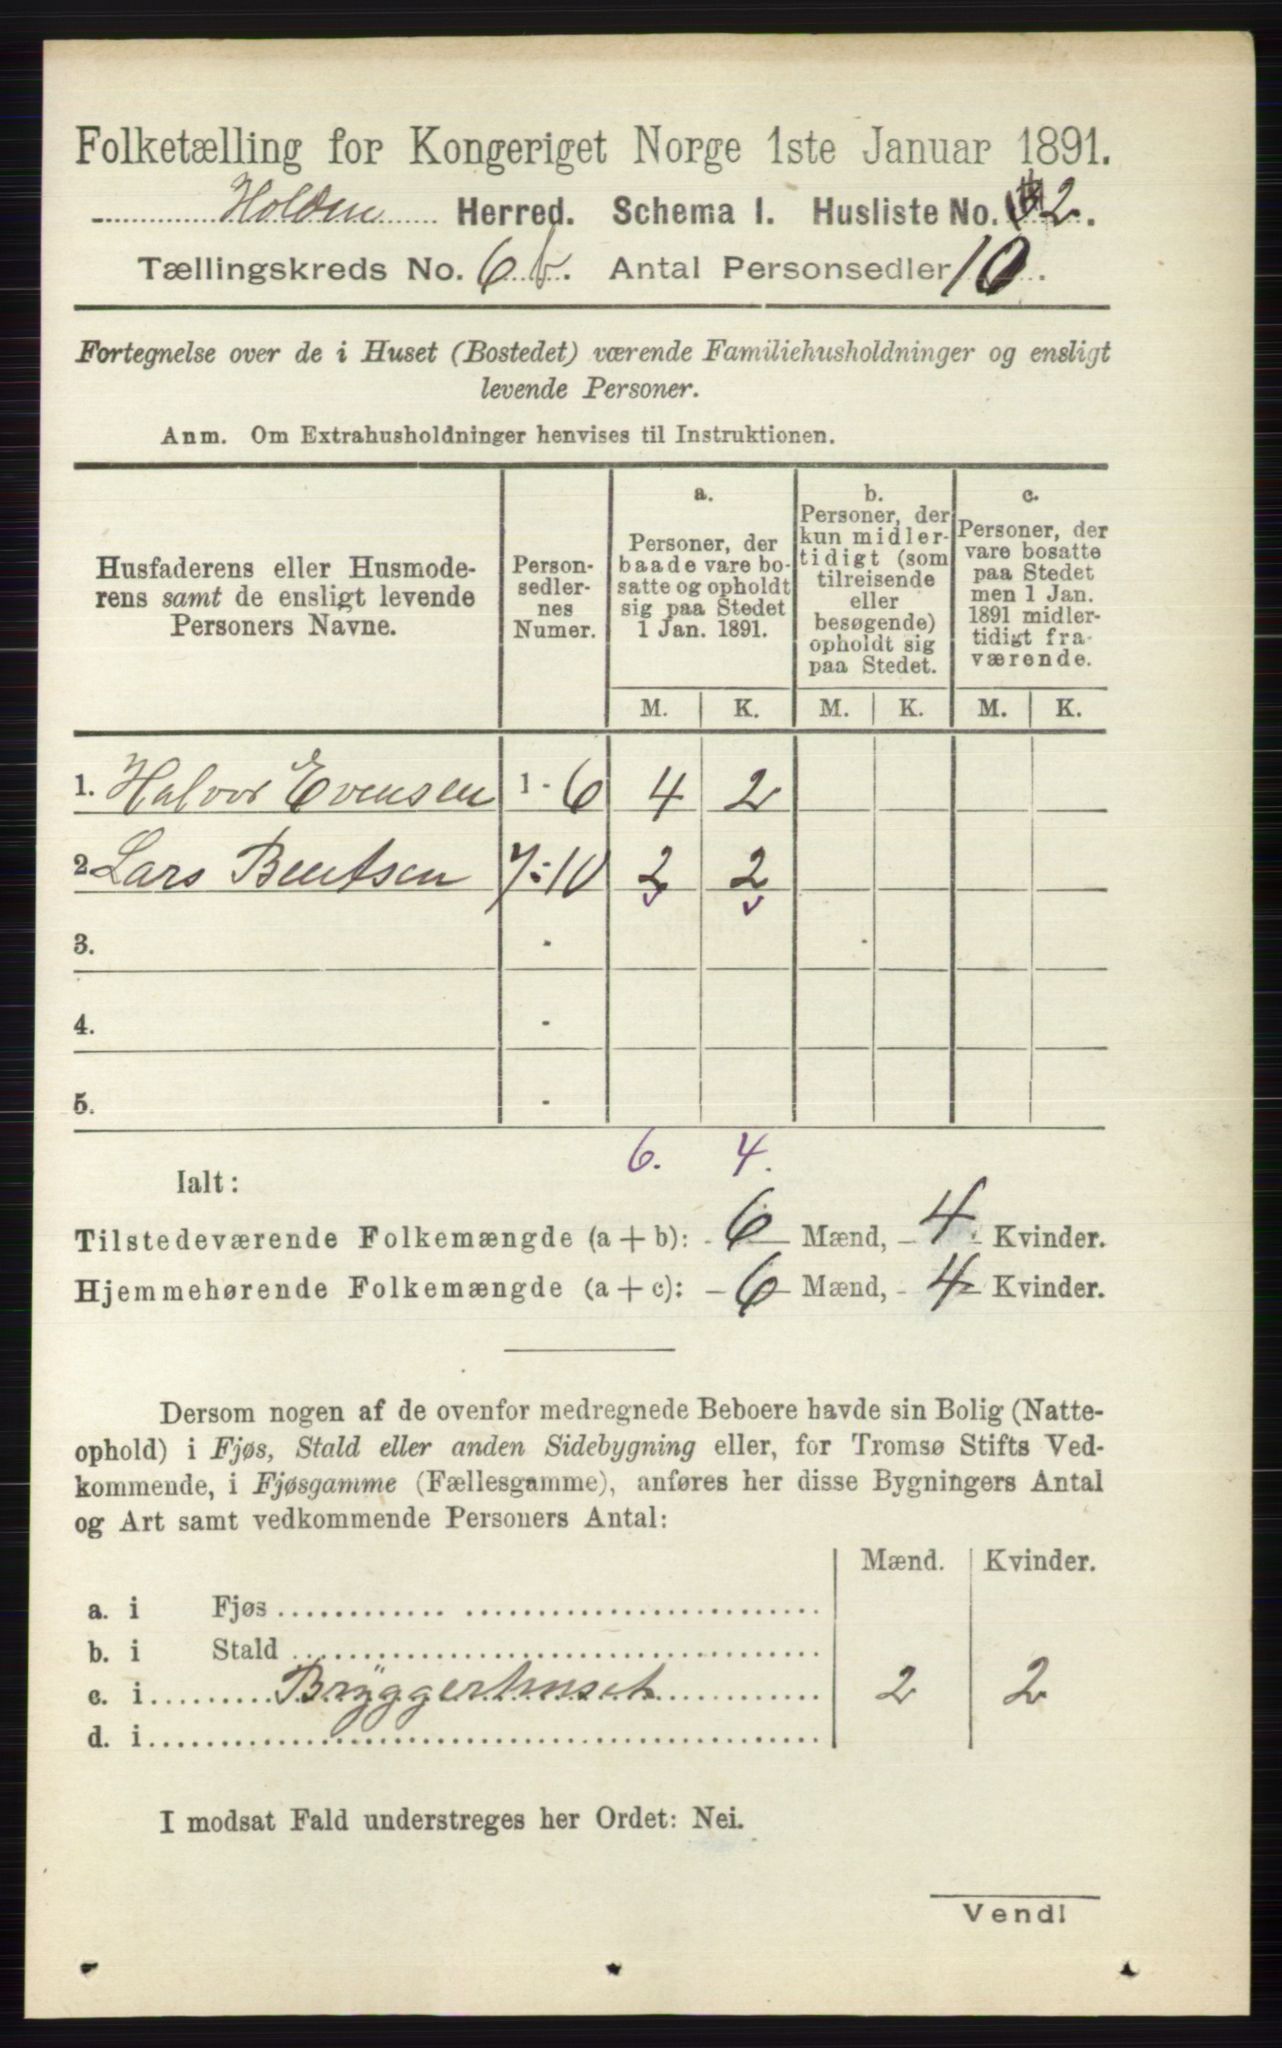 Folketælling for Kongeriget Norge 1ste Januar 1891.
Holden Herred. Schema I. Husliste No. 2.
Tællingskreds No. 6 b. Antal Personsedler 10.
Fortegnelse over de i Huset (Bostedet) værende Familiehusholdninger og ensligt
levende Personer.
Anm. Om Extrahusholdninger henvises til Instruktionen.
Husfaderens eller Husmode-
rens samt de ensligt levende
Personers Navne.
Person-
sedler-
nes
Numer.
a.
Personer, der
baade vare bo-
satte og opholdt
sig paa Stedet
1 Jan. 1891.
b.
Personer, der
kun midler-
tidigt (som
tilreisende
eller
besøgende)
opholdt sig
paa Stedet.
c.
Personer, der
vare bosatte
paa Stedet
men 1 Jan.
1891 midler-
tidigt fra-
værende.
M. K. M. K. M. K.
1. Halvor Evensen 1 - 6 4 2
2 Lars Bentsen 7-10 2 2
3. -
4. -
5. -
6. 4.
Ialt:
Tilstedeværende Folkemængde (a + b): 6 Mænd, 4 Kvinder.
Hjemmehørende Folkemængde (a + c): 6 Mænd, 4 Kvinder.
Dersom nogen af de ovenfor medregnede Beboere havde sin Bolig (Natte-
ophold) i Fjøs, Stald eller anden Sidebygning eller, for Tromsø Stifts Ved-
kommende, i Fjøsgamme (Fællesgamme), anføres her disse Bygningers Antal
og Art samt vedkommende Personers Antal:
Mænd. Kvinder.
a. i Fjøs
b. i Stald
c. i Bryggerhuset 2 2
d. i
I modsat Fald understreges her Ordet: Nei.
Vend!